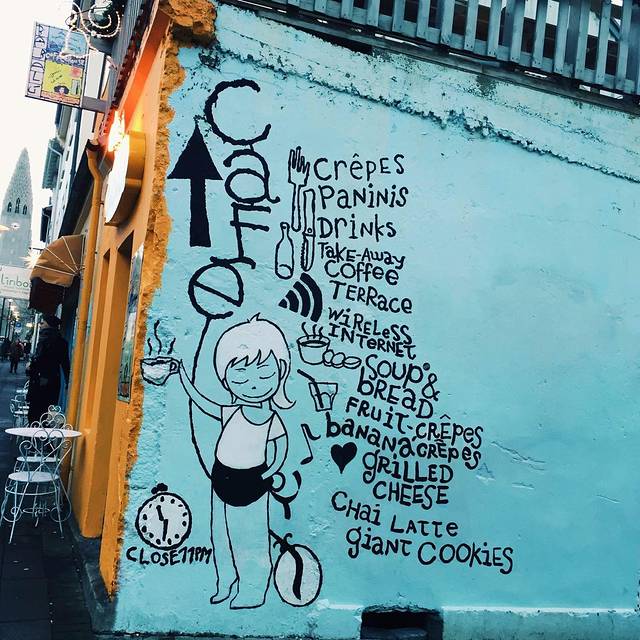 Café
CRÊPES
PANINIS
DRINKS
TAKE-AWAY
COFFEE
TERRACE
WIRELESS
INTERNET
SOUP &
BREAD
FRUIT-CRÊPES
bANANACRÊPES
gRILLED
CHEESE
CHai LATTE
giaNT COOKiES
CLOSE 11PM